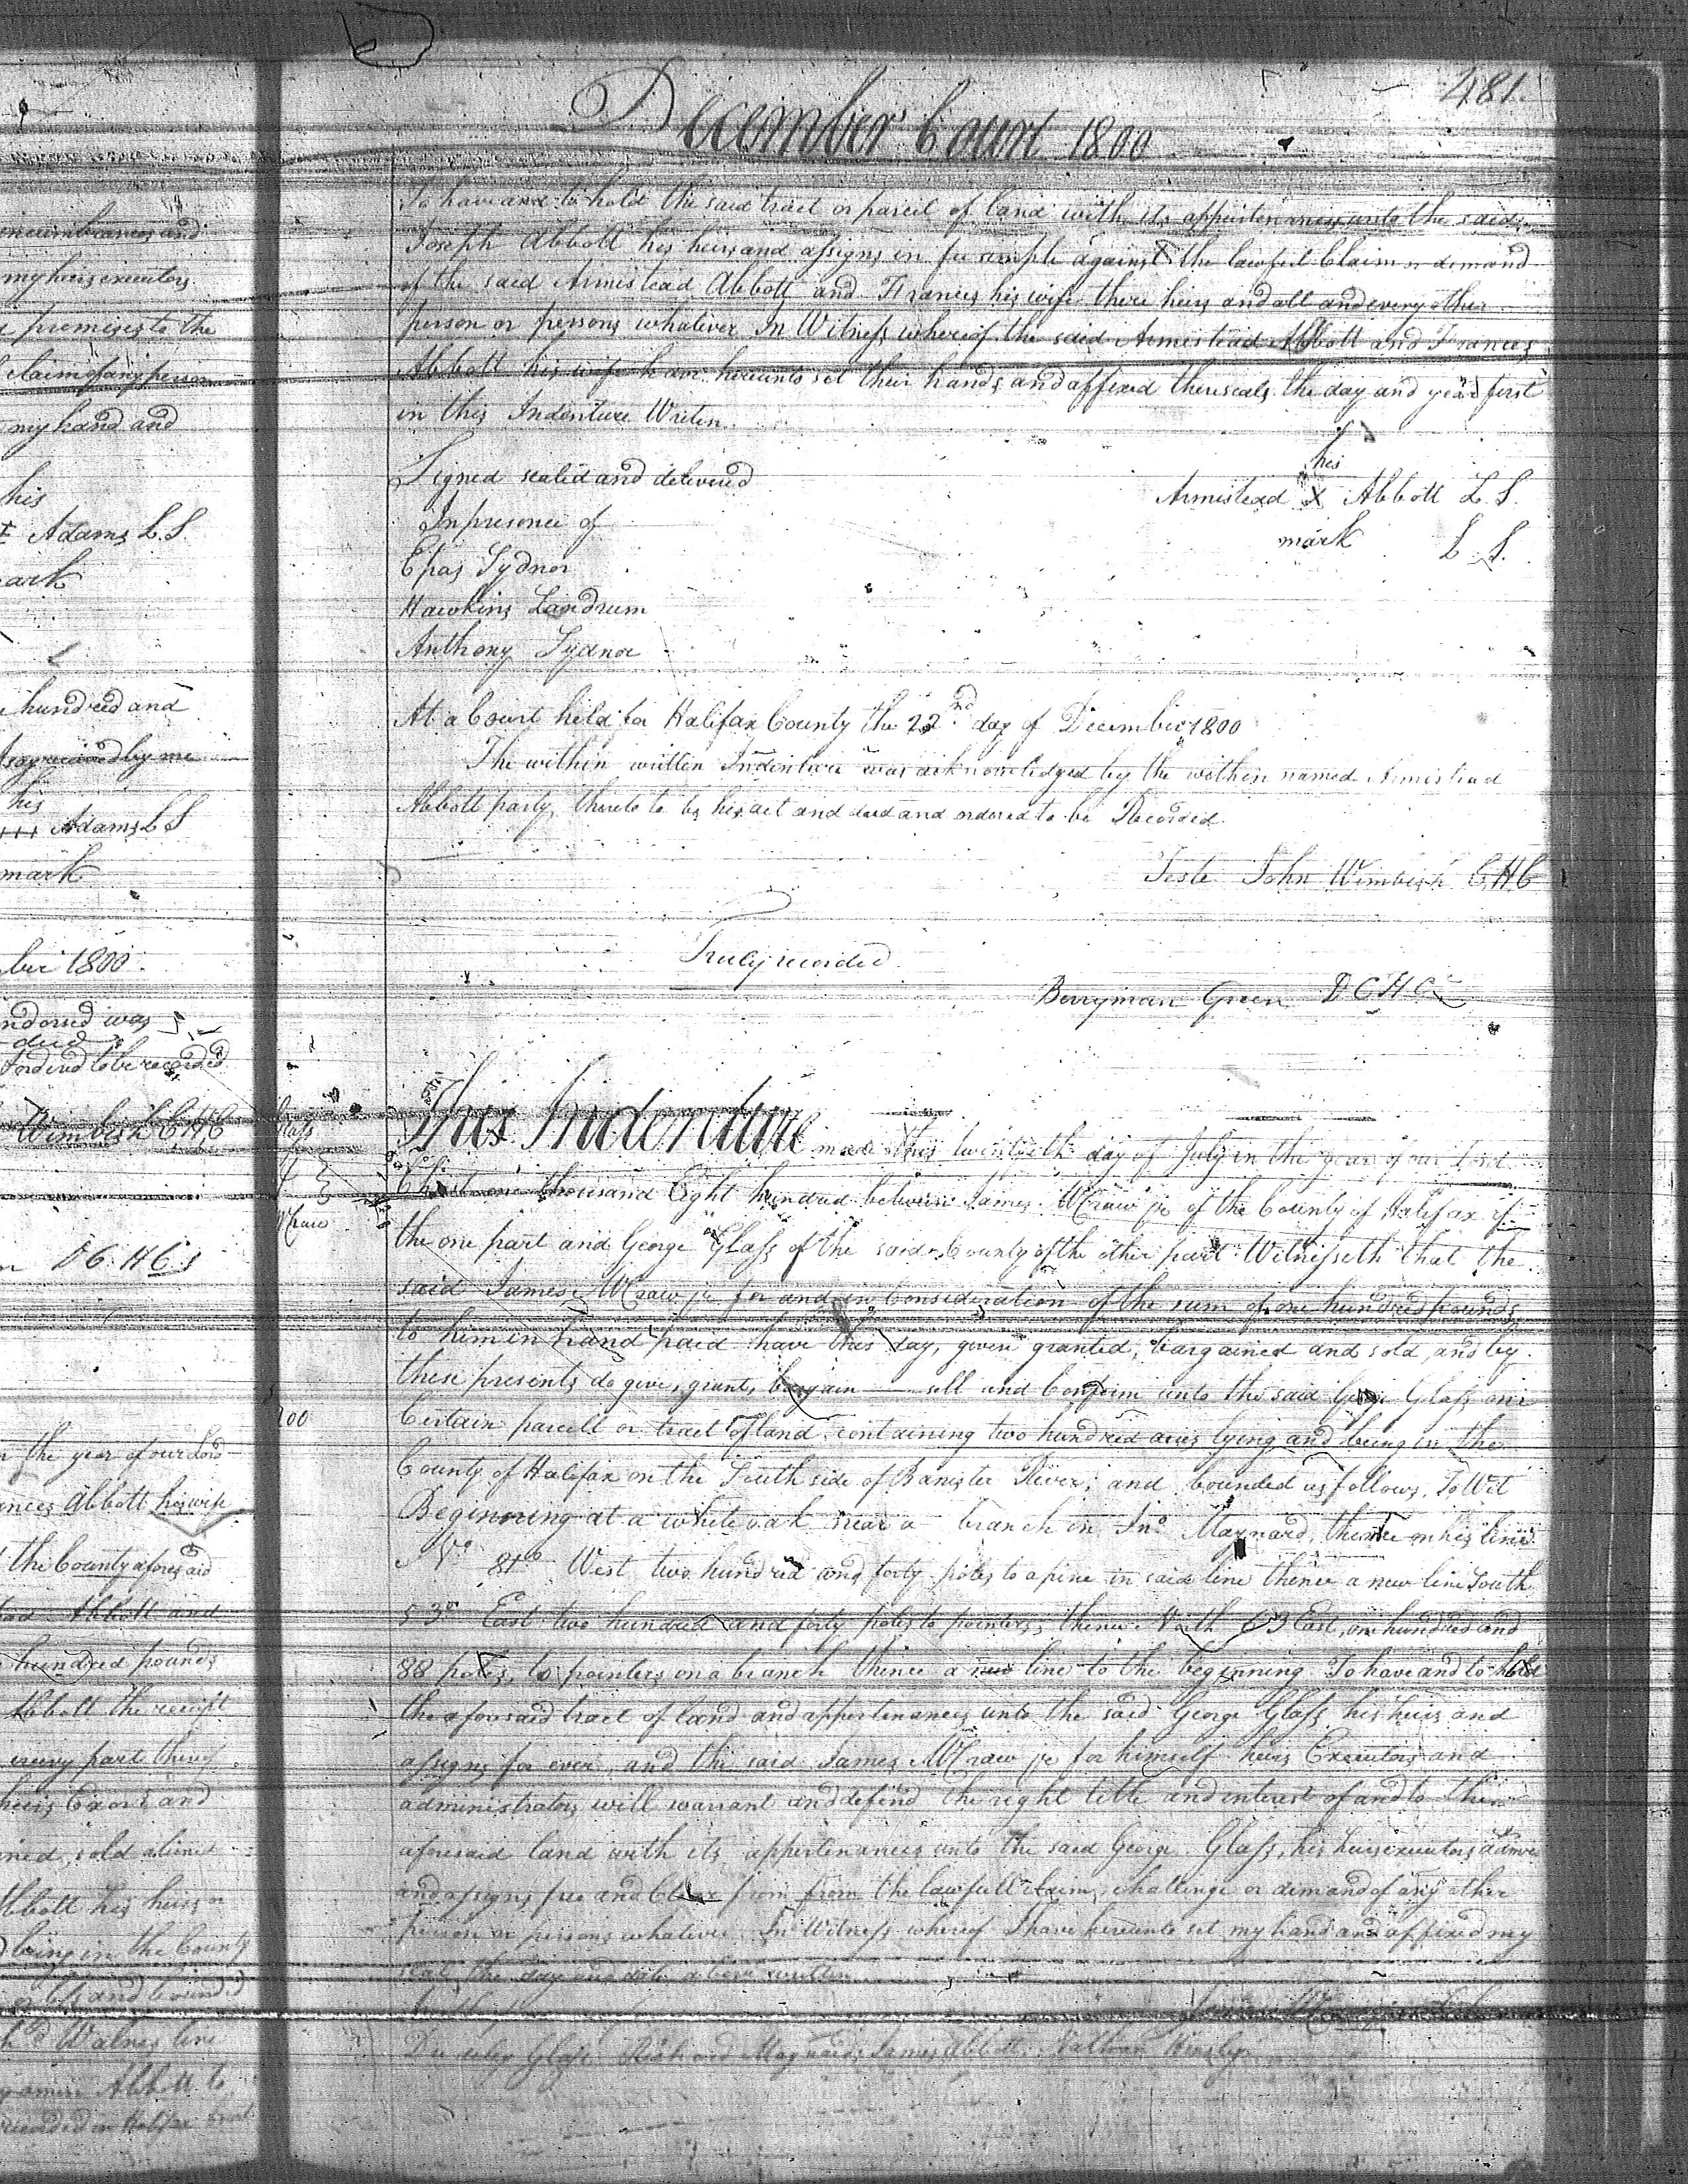 incumbrances and
my heirs executors
premises to the
claim of any person
my hand and
his
Adams L.S.
mark
hundred and
by me
his
+++ Adams L S
mark
ber 1800
ndorsed was
deed
ordered to be recorded
Wimbish C H C
D C H C
in the year of our Lord
ances Abbott his wife
the County aforesaid
Abbott and
hundred pounds
Abbott the receipt
every part thereof
heirs Exors and
ined, sold aliene
Abbott his heirs or
being in the County
and bounded
Walnes line
Abbott to
recorded in Halifax
Glass
McCraw
200
481.
December Court 1800
To have and to hold the said tract or parcil of land with its appertenances unto the said
Joseph Abbott his heirs and assigns in fee simple against the lawfull Claim or demand
of the said Armistead Abbott and Frances his wife there heirs and all and every other
person or persons whatever In Witness whereof the said Armistead Abbott and Frances
Abbott his wife have hereunto set their hands and affixed there seals the day and year first
in this Indenture Writen
Signed sealed and delivered
In presence of
Epas Sydnor
Hawkins Landrum
Anthony Sydnor
his
Armistead X Abbott L. S.
mark L. S.
At a Court held for Halifax County the 22nd day of December 1800
The within written Indenture was acknowledged by the within named Armistead
Abbott party thereto to be his act and deed and ordered to be Recorded
Teste John Wimbish C H C
Truly recorded
Berryman Green D C H C
This Indenture made this twentieth day of July in the year of our Lord
Christ one thousand Eight hundred between James McCraw jr of the County of Halifax of
the one part and George Glass of the said County of the other part Witnesseth that the
said James McCraw jr for and in Consideration of the sum of one hundred pounds
to him in hand paid have this day, given granted, bargained and sold, and by
these presents do give, grant, bargain sell and Confirm unto the said George Glass one
Certain parcell or tract of land containing two hundred acres lying and being in the
County of Halifax on the South side of Banister River, and bounded as follows, To Wit
Beginning at a white oak near a branch in Jno Maynard, thence on his line
No 81o West two hundred and forty poles to a pine in said line thence a new line South
53o East two hundred and forty poles to pointers; thence North 69 East, one hundred and
88 poles, to pointers on a branch thence a new line to the beginning To have and to hold
the aforesaid tract of land and appertenances unto the said George Glass his heirs and
assigns for ever, and the said James McCraw jr for himself heirs Executors and
administrators will warrant and defend the right title and interest of and to the
aforesaid land with its appertenances unto the said George Glass, his heirs executors admrs
and assigns free and Clear from from the lawfull claim, challenge or demand of any other
person or persons whatever. In Witness whereof I have hereunto set my hand and affixed my
seal the day and date above written
James McCraw
Dudley Glass Richard Maynard, James Abbott, Nathan